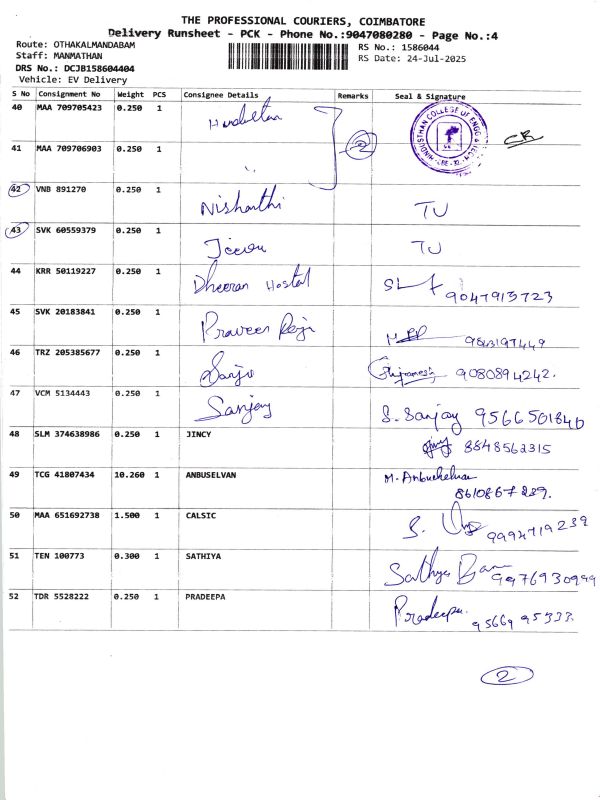 THE PROFESSIONAL COURIERS, COIMBATORE
Delivery Runsheet - PCK - Phone No.:9047080280 - Page No.:4
Route: OTHAKALMANDABAM
Staff: MANMATHAN
DRS No.: DCJB158604404
Vehicle: EV Delivery
RS No.: 1586044
RS Date: 24-Jul-2025
S No Consignment No Weight PCS Consignee Details Remarks Seal & Signature
40 MAA 709705423 0.250 1 Hindustan
HINDUSTHAN COLLEGE OF ENGG & TECH
41 MAA 709706903 0.250 1 2
42 VNB 891270 0.250 1 Nishanthi TU
43 SVK 60559379 0.250 1 Jeeva TU
44 KRR 50119227 0.250 1 Dheeran Hostal 9047913723
45 SVK 20183841 0.250 1 Praveen 9843197449
46 TRZ 205385677 0.250 1 Sanjiv 9080894242.
47 VCM 5134443 0.250 1 Sanjay S. Sanjay 9566501840
48 SLM 374638986 0.250 1 JINCY 8848562315
49 TCG 41807434 10.260 1 ANBUSELVAN M. Anbuchelvan
8610867239.
50 MAA 651692738 1.500 1 CALSIC S. 9994719239
51 TEN 100773 0.300 1 SATHIYA Sathya 9976930999
52 TDR 5528222 0.250 1 PRADEEPA Pradeepa. 9566995333.
2